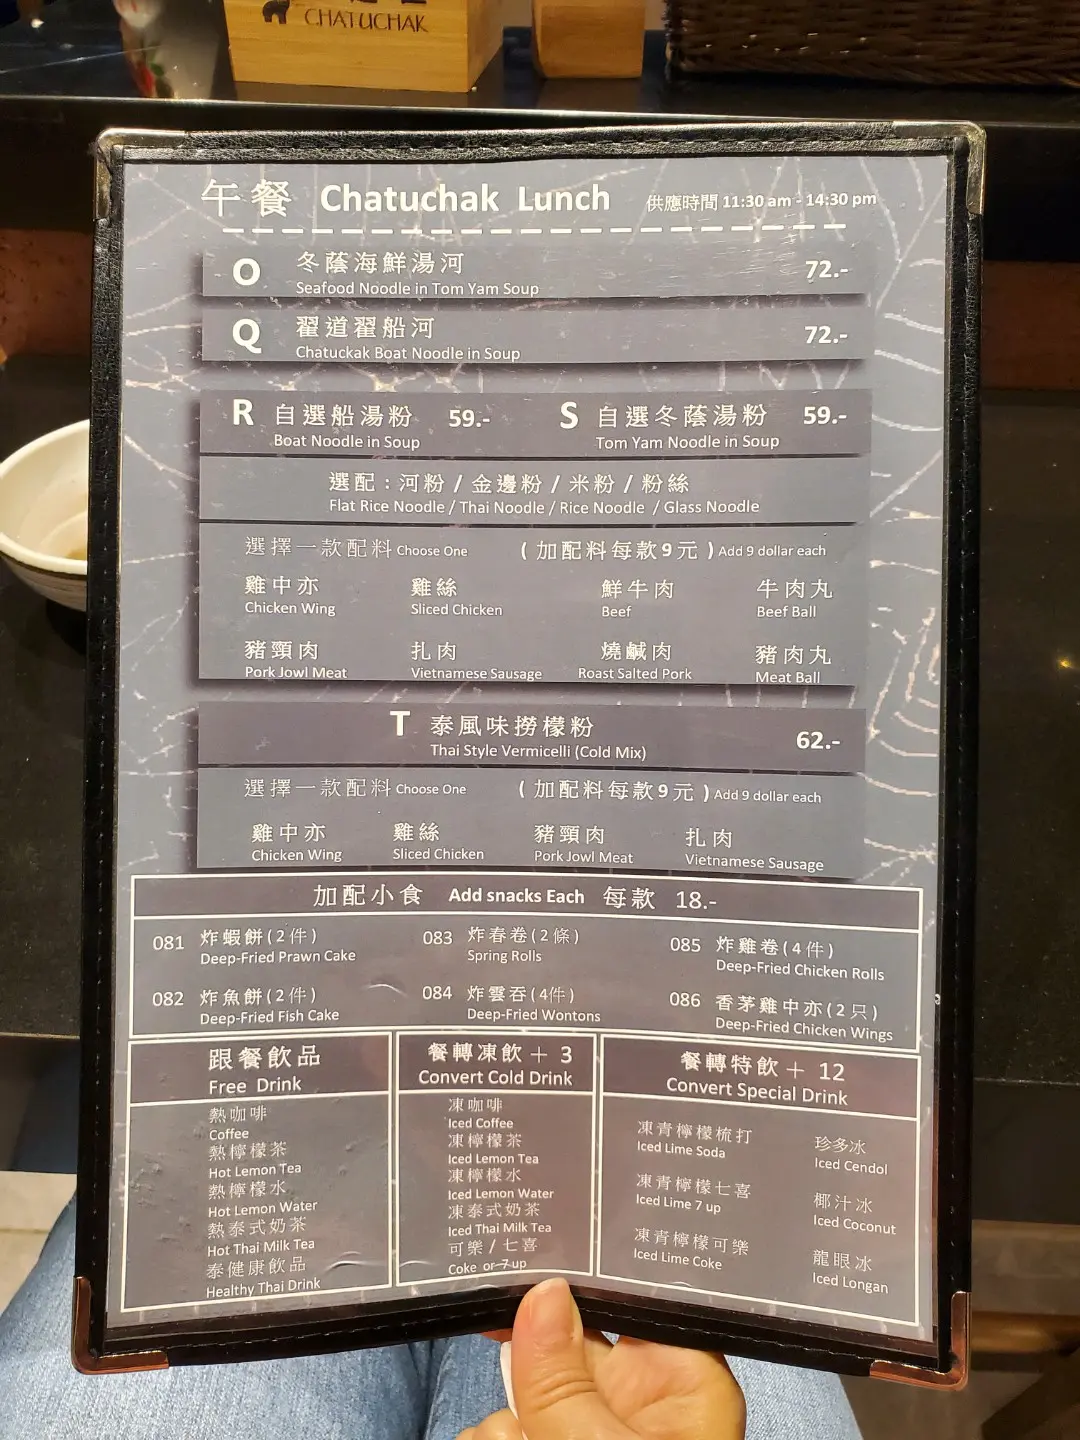 CHATUCHAK
午餐 Chatuchak Lunch 供應時間 11:30 am - 14:30 pm
O 冬蔭海鮮湯河 72.-
Seafood Noodle in Tom Yam Soup
Q 翟道翟船河 72.-
Chatuckak Boat Noodle in Soup
R 自選船湯粉 59.- S 自選冬蔭湯粉 59.-
Boat Noodle in Soup Tom Yam Noodle in Soup
選配：河粉 / 金邊粉 / 米粉 / 粉絲
Flat Rice Noodle / Thai Noodle / Rice Noodle / Glass Noodle
選擇一款配料 Choose One ( 加配料每款9元 ) Add 9 dollar each
雞中亦 雞絲 鮮牛肉 牛肉丸
Chicken Wing Sliced Chicken Beef Beef Ball
豬頸肉 扎肉 燒鹹肉 豬肉丸
Pork Jowl Meat Vietnamese Sausage Roast Salted Pork Meat Ball
T 泰風味撈檬粉 62.-
Thai Style Vermicelli (Cold Mix)
選擇一款配料 Choose One ( 加配料每款9元 ) Add 9 dollar each
雞中亦 雞絲 豬頸肉 扎肉
Chicken Wing Sliced Chicken Pork Jowl Meat Vietnamese Sausage
加配小食 Add snacks Each 每款 18.-
081 炸蝦餅(2件) 083 炸春卷(2條) 085 炸雞卷(4件)
Deep-Fried Prawn Cake Spring Rolls Deep-Fried Chicken Rolls
082 炸魚餅(2件) 084 炸雲吞(4件) 086 香茅雞中亦(2只)
Deep-Fried Fish Cake Deep-Fried Wontons Deep-Fried Chicken Wings
跟餐飲品
Free Drink
熱咖啡
Coffee
熱檸檬茶
Hot Lemon Tea
熱檸檬水
Hot Lemon Water
熱泰式奶茶
Hot Thai Milk Tea
泰健康飲品
Healthy Thai Drink
餐轉凍飲＋ 3
Convert Cold Drink
凍咖啡
Iced Coffee
凍檸檬茶
Iced Lemon Tea
凍檸檬水
Iced Lemon Water
凍泰式奶茶
Iced Thai Milk Tea
可樂 / 七喜
Coke or 7 up
餐轉特飲＋ 12
Convert Special Drink
凍青檸檬梳打 珍多冰
Iced Lime Soda Iced Cendol
凍青檸檬七喜 椰汁冰
Iced Lime 7 up Iced Coconut
凍青檸檬可樂 龍眼冰
Iced Lime Coke Iced Longan